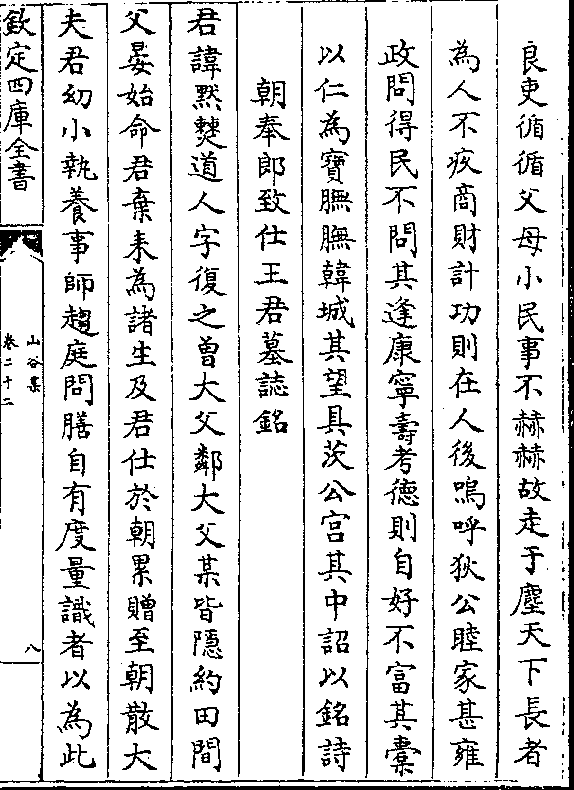 良吏循循父母小民事不赫赫故走于塵天下長者
為人不疚商財計功則在人後嗚呼狄公睦家甚雍
政問得民不問其逢康寧壽考德則自好不富其橐
以仁為寶膴膴韓城其望具茨公宫其中詔以銘詩
朝奉郎致仕王君墓誌銘
君諱黙僰道人字復之曽大父鄰大父某皆隱約田間
父晏始命君棄耒為諸生及君仕於朝累贈至朝散大
夫君幼小執養事師趨庭問膳自有度量識者以為此
欽定四庫全書
山谷集
卷二十二
八